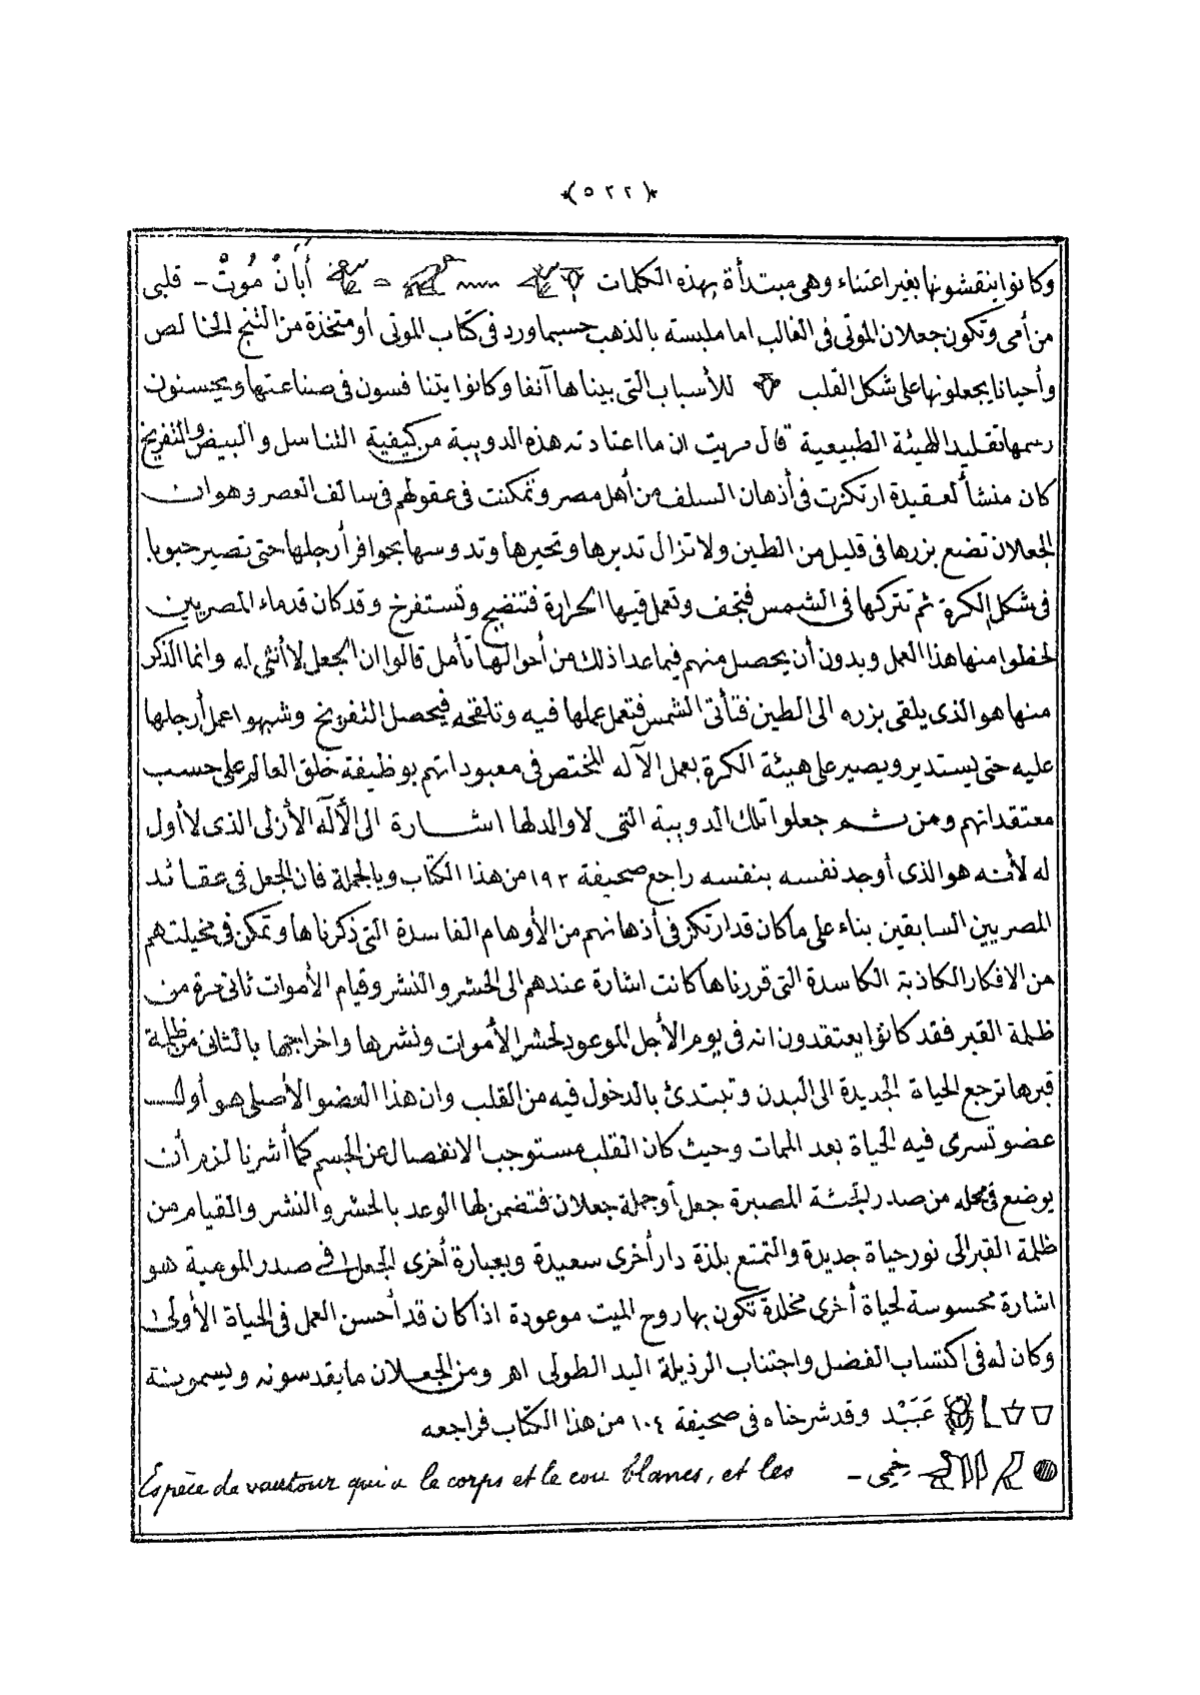 *(٥٢٢)*
وكانوا ينقشونها بغير اعتناء وهى مبتدأة بهذه الكلمات أَبْانْ مُوتْ - قلبى
من أمى وتكون جعلان الموتى فى الغالب اما ملبسه بالذهب حسبما ورد فى كتاب الموتى أو متخذة من الثنج الخالص
وأحيانا يجعلونها على شكل القلب للأسباب التى بيناها آنفا وكانوا يتنافسون فى صناعتها ويحسنون
رسمها تقليد الهيئة الطبيعية قال مريت ان ما اعتادته هذه الدويبة من كيفية التناسل والبيض والتفريخ
كان منشأ لعقيدة ارتكزت فى أذهان السلف من أهل مصر وتمكنت فى عقولهم فى سالف العصر وهو ان
الجعلان تضع بزرها فى قليل من الطين ولا تزال تديرها وتحيرها وتدوسها بحوافر أرجلها حتى تصير حبوبا
فى شكل الكرة ثم تتركها فى الشمس فتجف وتعمل فيها الحرارة فتنضج وتستفرخ وقد كان قدماء المصريين
لحظوا منها هذا العمل وبدون أن يحصل منهم فيما عدا ذلك من أحوالها تأمل قالوا ان الجعل لا أنثى له وانما الذكر
منها هو الذى يلقى بزره الى الطين فتأتى الشمس فتعمل عملها فيه وتلقحه فيحصل التفريخ وشبهوا عمل أرجلها
عليه حتى يستدير ويصير على هيئة الكرة بعمل الآله المختص فى معبوداتهم بوظيفة خلق العالم على حسب
معتقداتهم ومن ثم جعلوا تلك الدويبة التى لا والد لها اشارة الى الآله الأزلى الذى لا أول
له لأنه هو الذى أوجد نفسه بنفسه راجع صحيفة ١٩٣ من هذا الكتاب وبالجملة فان الجعل فى عقائد
المصريين السابقين بناء على ما كان قد ارتكز فى أذهانهم من الأوهام الفاسدة التى ذكرناها وتمكن فى مخيلتهم
من الافكار الكاذبة الكاسدة التى قررناها كانت اشارة عندهم الى الحشر والنشر وقيام الأموات ثانى مرة من
ظلمة القبر فقد كانوا يعتقدون انه فى يوم الأجل الموعود لحشر الأموات ونشرها واخراجها بالثانى من ظلمة
قبرها ترجع الحياة الجديدة الى البدن وتبتدئ بالدخول فيه من القلب وان هذا العضو الأصلى هو أول
عضو تسرى فيه الحياة بعد الممات وحيث كان القلب مستوجب الانفصال عن الجسم كما أشرنا لزم أن
يوضع فى محله من صدر الجثة المصبرة جعل أو جملة جعلان فتضمن لها الوعد بالحشر والنشر والقيام من
ظلمة القبر الى نور حياة جديدة والتمتع بلذة دار أخرى سعيدة وبعبارة أخرى الجعل فى صدر المومية هو
اشارة محسوسة لحياة أخرى مخلدة تكون بها روح الميت موعودة اذا كان قد أحسن العمل فى الحياة الأولى
وكان له فى اكتساب الفضل واجتناب الرذيلة اليد الطولى اهـ ومن الجعلان ما يقدسونه ويسمونه
عَبَبْد وقد شرحناه فى صحيفة ١٠٤ من هذا الكتاب فراجعه
خمى - Espèce de vautour qui a le corps et le cou blancs, et les